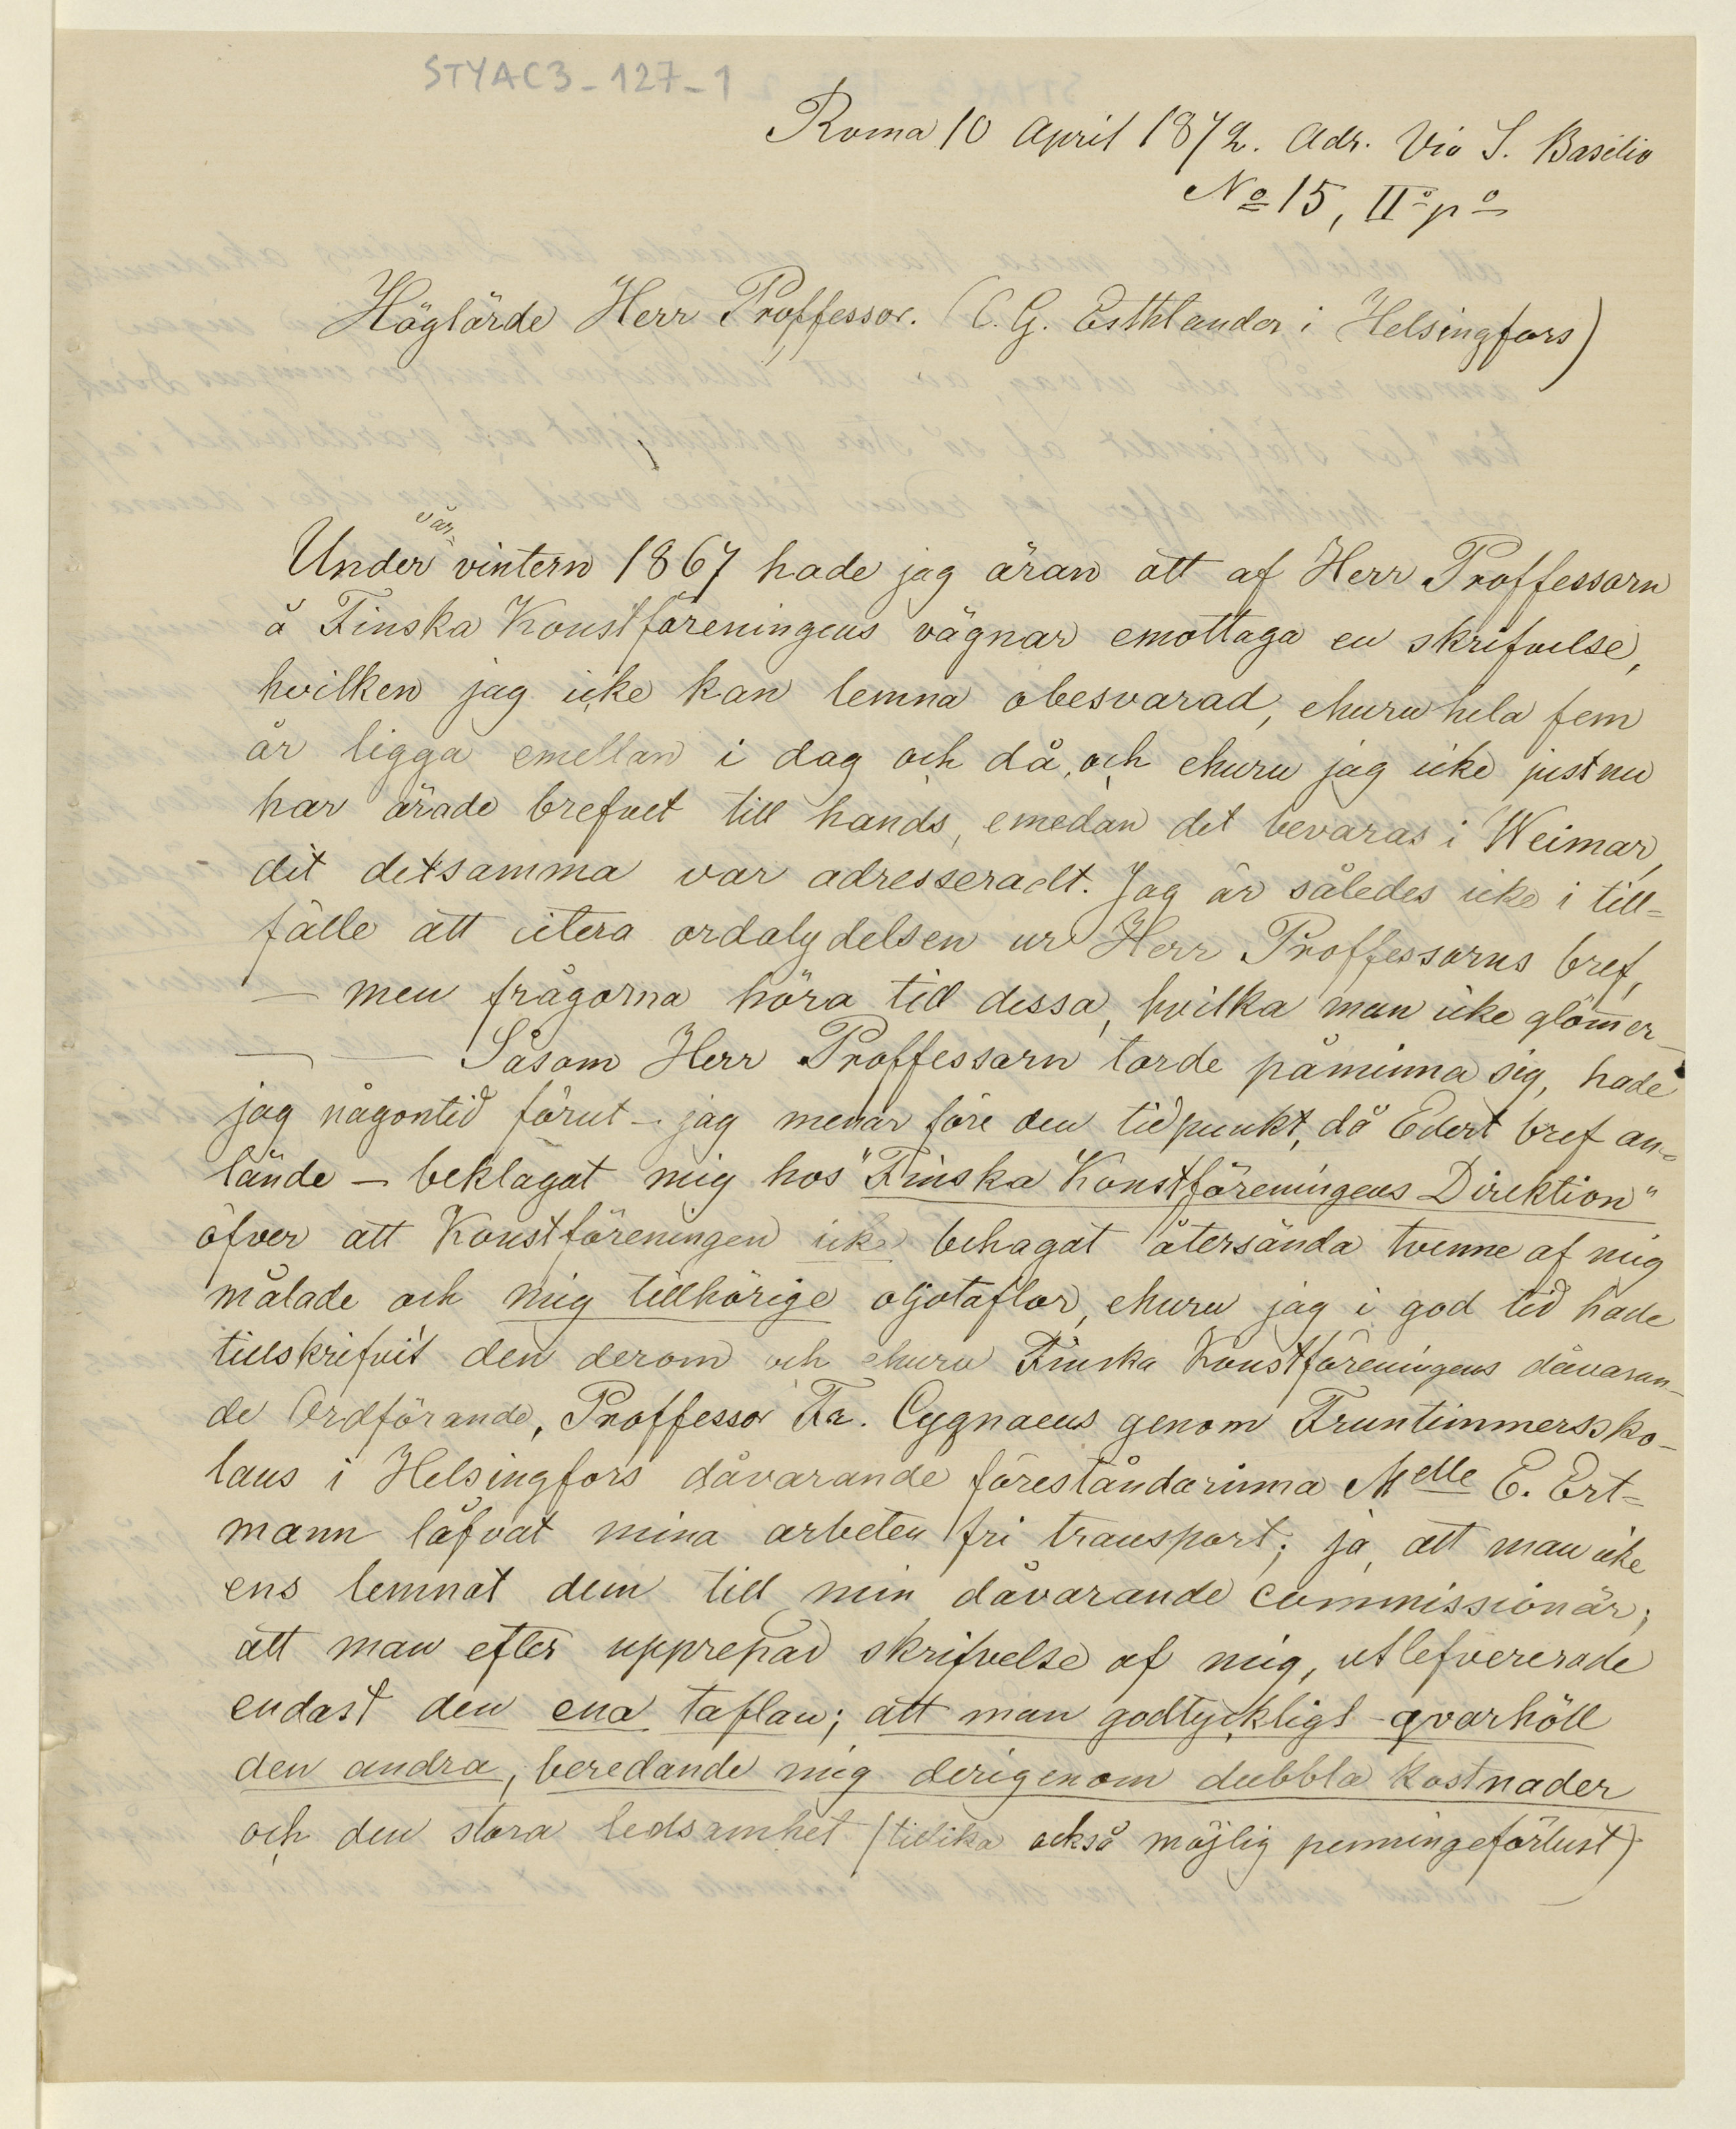 STYAC3-127-1
Roma 10 April 1872. Adr. Via S. Basilio
No 15, IIo po
Höglärde Herr Proffessor. (C. G. Esthlander i Helsingfors)
vår-
Under vintern 1867 hade jag äran att af Herr Proffessorn
å Finska Konstföreningens vägnar emottaga en skrifvelse,
hvilken jag icke kan lemna obesvarad, ehuru hela fem
år ligga emellan i dag och då, och ehuru jag icke just nu
har ärade brefvet till hands, emedan det bevaras i Weimar,
dit detsamma var adresseradt. Jag är således icke i till=
fälle att citera ordalydelsen ur Herr Proffessorns bref,
— men frågorna höra till dessa, hvilka man icke glömer —
— — Såsom Herr Proffessorn torde påminna sig, hade
jag någontid förut — jag menar före den tidpunkt, då Edert bref an=
lände — beklagat mig hos "Finska Konstföreningens Direktion"
öfver att Konstföreningen icke behagat återsända tvenne af mig
målade och mig tillhörige oljotaflor, ehuru jag i god tid hade
tillskrifvit den derom och ehuru Finska Konstföreningens dåvaran-
de Ordförande, Proffessor Fr. Cygnaeus genom Fruntimmersko-
lans i Helsingfors dåvarande föreståndarinna Melle E. Ert=
mann låfvat mina arbeten fri transport; ja, att man icke
ens lemnat dem till min dåvarande commissionär;
att man efter upprepad skrifvelse af mig, utlefvererade
endast den ena taflan; att man godtyckligt qvarhöll
den andra, beredande mig derigenom dubbla kostnader
och den stora ledsamhet (tillika också möjlig penningeförlust)